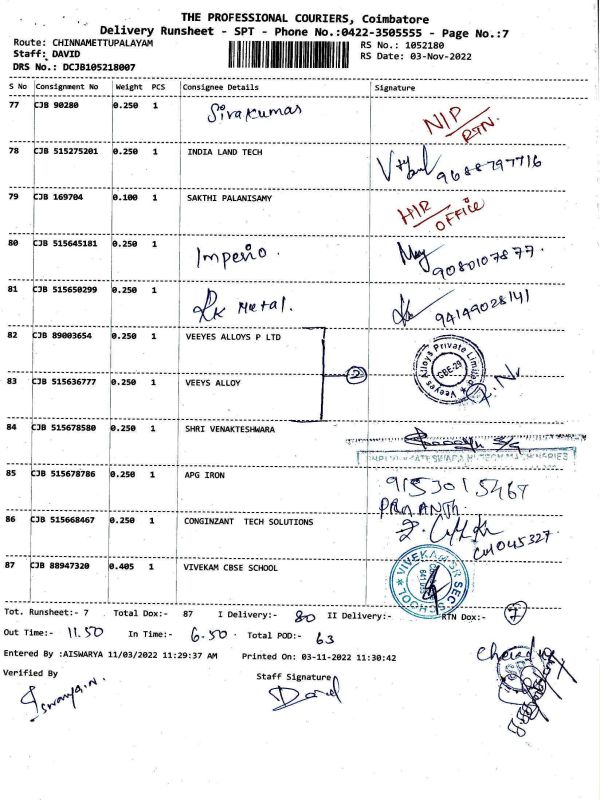 THE PROFESSIONAL COURIERS, Coimbatore
Delivery Runsheet - SPT - Phone No.:0422-3505555 - Page No.:7
Route: CHINNAMETTUPALAYAM
RS No.: 1052180
Staff: DAVID
RS Date: 03-Nov-2022
DRS No.: DCJB105218007
S No Consignment No Weight PCS Consignee Details Signature
77 CJB 90280 0.250 1 Sivakumar N/P RTN.
78 CJB 515275201 0.250 1 INDIA LAND TECH 9688797716
79 CJB 169704 0.100 1 SAKTHI PALANISAMY H/R OFFICE
80 CJB 515645181 0.250 1 Imperio. 9080107877.
81 CJB 515650299 0.250 1 RK Metal. 94149028141
82 CJB 89003654 0.250 1 VEEYES ALLOYS P LTD Veeyes Alloys Private Limited CBE-29
2
83 CJB 515636777 0.250 1 VEEYS ALLOY
84 CJB 515678580 0.250 1 SHRI VENAKTESHWARA
85 CJB 515678786 0.250 1 APG IRON 9153015467
PRASANTH
86 CJB 515668467 0.250 1 CONGINZANT TECH SOLUTIONS
CM045327
87 CJB 88947320 0.405 1 VIVEKAM CBSE SCHOOL VIVEKAM SR SEC SCHOOL
Tot. Runsheet:- 7 Total Dox:- 87 I Delivery:- 80 II Delivery:- RTN Dox:- 7
Out Time:- 11.50 In Time:- 6.50 Total POD:- 63
Entered By :AISWARYA 11/03/2022 11:29:37 AM Printed On: 03-11-2022 11:30:42
Verified By Staff Signature
Iswarya.N. David